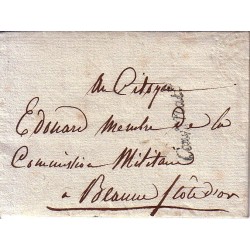 au Citoyen
Edouard membre de la
Commission Militaire
a Beaune Côte d'or